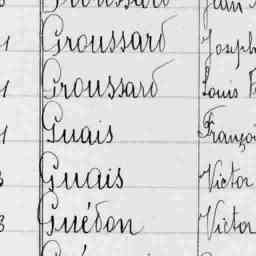 Groussard Jean
Groussard Joseph
Groussard Louis F
Guais Françoi
Guais Victor
Guédon Victor